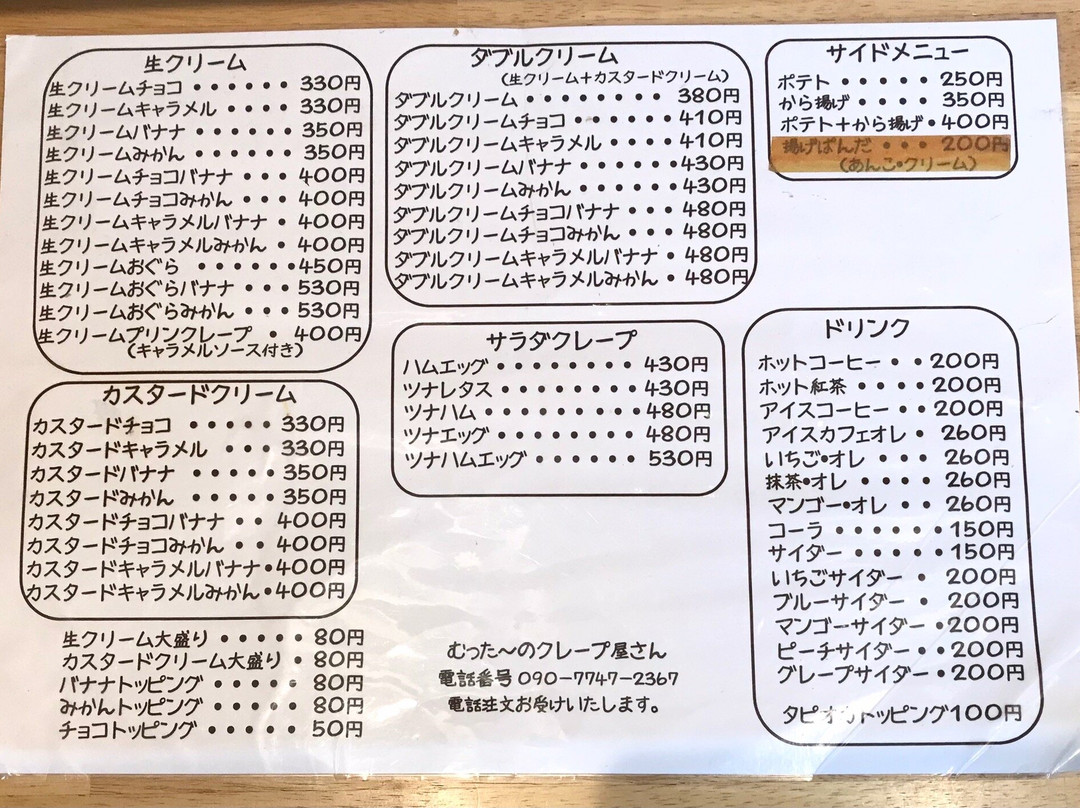 生クリーム
生クリームチョコ・・・・・330円
生クリームキャラメル・・・330円
生クリームバナナ・・・・・350円
生クリームみかん・・・・・350円
生クリームチョコバナナ・・400円
生クリームチョコみかん・・400円
生クリームキャラメルバナナ・400円
生クリームキャラメルみかん・400円
生クリームおぐら・・・・・450円
生クリームおぐらバナナ・・・530円
生クリームおぐらみかん・・・530円
生クリームプリンクレープ・400円
(キャラメルソース付き)
カスタードクリーム
カスタードチョコ・・・・・330円
カスタードキャラメル・・・330円
カスタードバナナ・・・・・350円
カスタードみかん・・・・・350円
カスタードチョコバナナ・・400円
カスタードチョコみかん・・400円
カスタードキャラメルバナナ・400円
カスタードキャラメルみかん・400円
生クリーム大盛り・・・・・80円
カスタードクリーム大盛り・80円
バナナトッピング・・・・・80円
みかんトッピング・・・・・80円
チョコトッピング・・・・・50円
ダブルクリーム
(生クリーム+カスタードクリーム)
ダブルクリーム・・・・・・・・380円
ダブルクリームチョコ・・・・・410円
ダブルクリームキャラメル・・・410円
ダブルクリームバナナ・・・・・430円
ダブルクリームみかん・・・・・430円
ダブルクリームチョコバナナ・・・480円
ダブルクリームチョコみかん・・・480円
ダブルクリームキャラメルバナナ・480円
ダブルクリームキャラメルみかん・480円
サラダクレープ
ハムエッグ・・・・・・・・430円
ツナレタス・・・・・・・・430円
ツナハム・・・・・・・・・480円
ツナエッグ・・・・・・・・480円
ツナハムエッグ・・・・・・530円
むった〜のクレープ屋さん
電話番号 090-7747-2367
電話注文お受けいたします。
サイドメニュー
ポテト・・・・・250円
から揚げ・・・・350円
ポテト+から揚げ・400円
揚げぱんだ・・・200円
(あんこ・クリーム)
ドリンク
ホットコーヒー・・200円
ホット紅茶・・・・200円
アイスコーヒー・・200円
アイスカフェオレ・260円
いちご・オレ・・・260円
抹茶・オレ・・・・260円
マンゴー・オレ・・260円
コーラ・・・・・・150円
サイダー・・・・・150円
いちごサイダー・200円
ブルーサイダー・200円
マンゴーサイダー・200円
ピーチサイダー・・200円
グレープサイダー・200円
タピオカトッピング100円